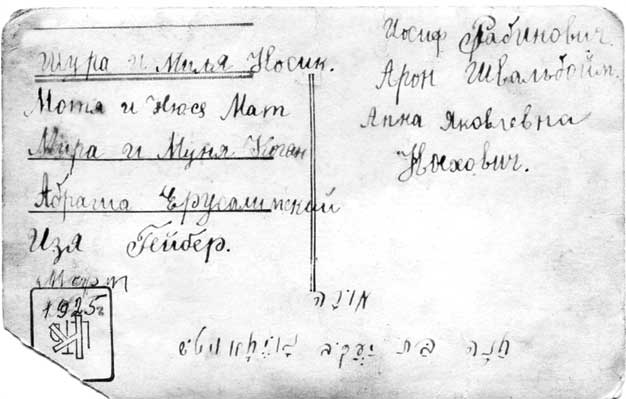 Шура и Миля Носик.
Мотя и Нюся Мат
Мира и Муня Коган
Абраша Ерусалимский
Изя Гейбер.
Март
1925г
Иосиф Рабинович.
Арон Швальбойм.
Анна Яковлевна
Нохович.
חנה בת יעקיב